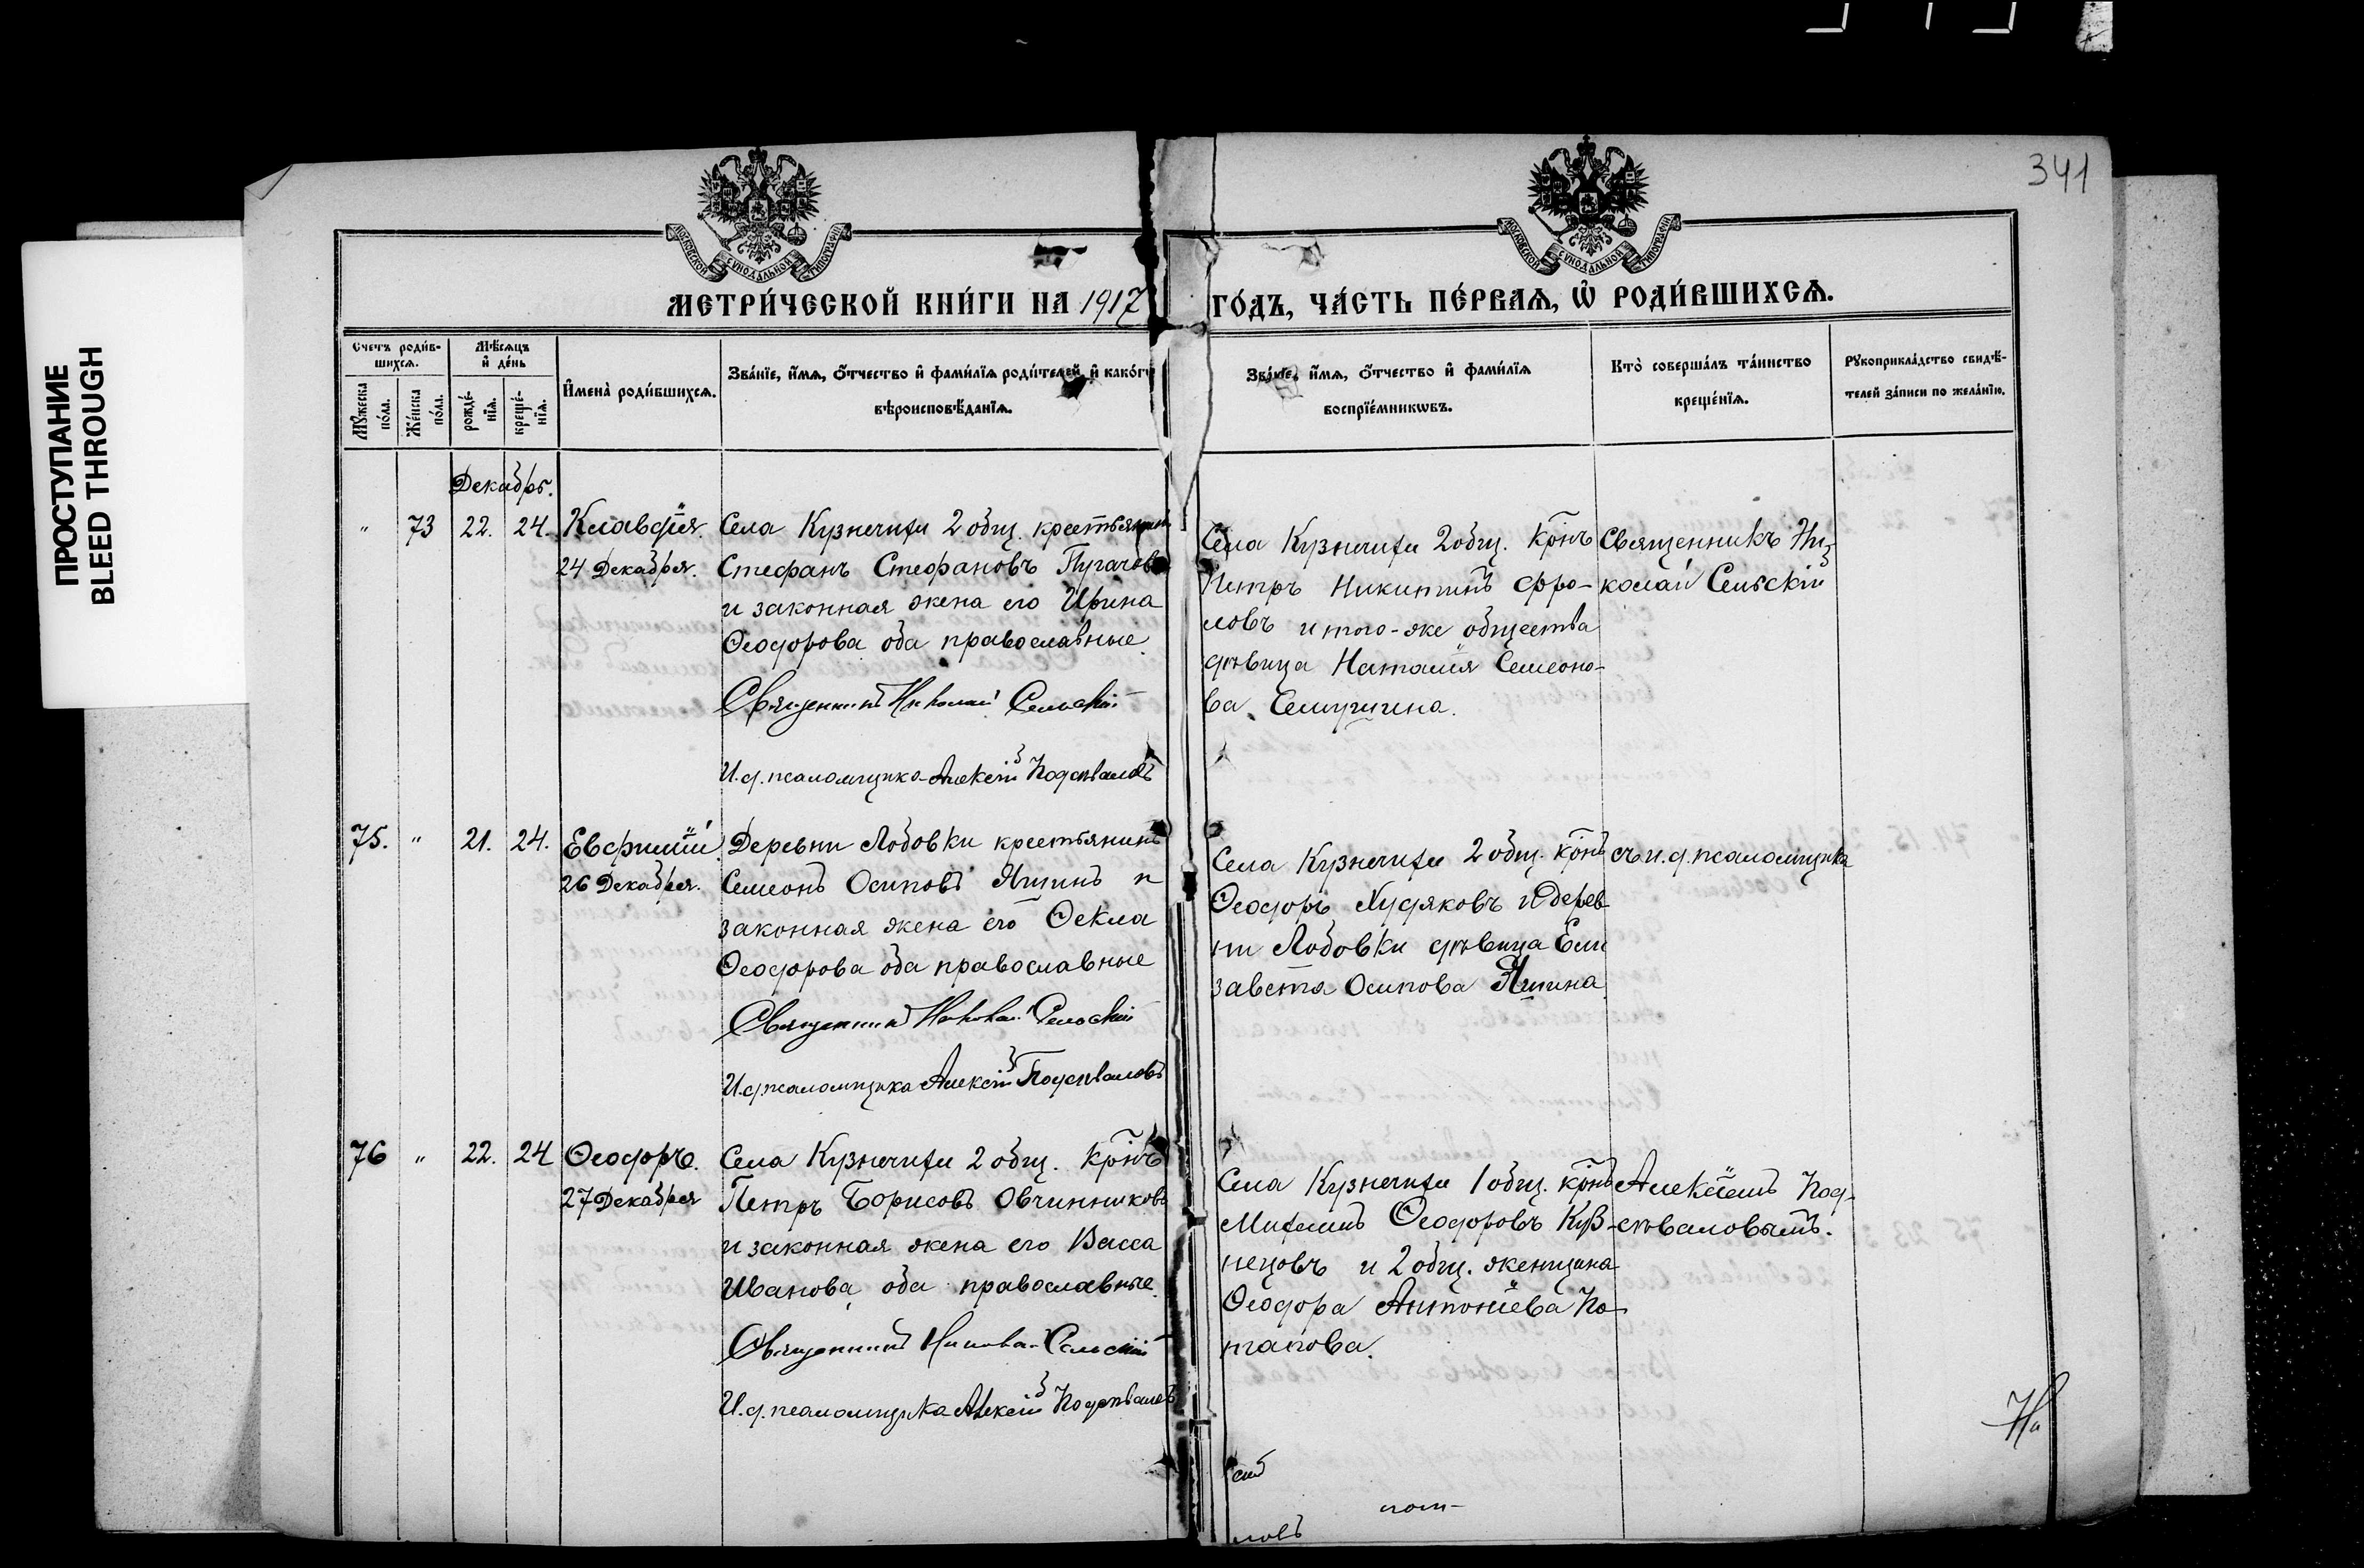 ПРОСТУПАНИЕ
BLEED THROUGH
341
МОСКОВСКОЙ СѴНОДАЛЬНОЙ ТИПОГРАФІИ
МОСКОВСКОЙ СѴНОДАЛЬНОЙ ТИПОГРАФІИ
МЕТРИ́ЧЕСКОЙ КНИ́ГИ НА 1917
ГО́ДЪ, ЧА́СТЬ ПЕ́РВАѦ, Ѡ҆ РОДИ́ВШИХСѦ.
Счетъ роди́в-
шихсѧ.
Мꙋ́жеска
по́ла.
Же́нска
по́ла.
Мѣ́сѧцъ
и҆ де́нь
рожде́-
нїѧ.
креще́-
нїѧ.
И҆мена̀ роди́вшихсѧ.
Зва́нїе, и҆́мѧ, ѻ҆́тчество и҆ фами́лїѧ роди́телей, и҆ како́гѡ
вѣроисповѣ́данїѧ.
Зва́нїе, и҆́мѧ, ѻ҆́тчество и҆ фами́лїѧ
воспрїе́мникѡвъ.
Кто̀ соверша́лъ та́инство
креще́нїѧ.
Рꙋкоприкла́дство свидѣ́-
телей за́писи по жела́нїю.
Декабрь.
" 73 22. 24. Клавдія.
24 Декабря.
Села Кузнечихи 2 общ. крестьянинъ
Стефанъ Стефановъ Пугачовъ
и законная жена его Ирина
Ѳеодорова оба православные.
Священникъ Николай Сельскій
И.д. псаломщика Алексій Подсѣваловъ
Села Кузнечихи 2 общ. кр̃нъ
Петръ Никитинъ Фро-
ловъ и того-же общества
дѣвица Наталія Семеоно-
ва
Священникъ Ни-
колай Сельскій
75. " 21. 24. Евфимій.
26 Декабря.
Деревни Лобовки крестьянинъ
Семеонъ Осиповъ Яшинъ и
законная жена его Ѳекла
Ѳеодорова оба православные
Священникъ Николай Сельскій
И.д. псаломщика Алексій Подсѣваловъ
Села Кузнечихи 2 общ. кр̃нъ
Ѳеодоръ Худяковъ и дерев-
ни Лобовки дѣвица Ели
завета Осипова Яшина
съ и.д. псаломщика
76 " 22. 24 Ѳеодоръ.
27 Декабря
Села Кузнечихи 2 общ. кр̃нъ
Петръ Борисовъ Овчинниковъ
и законная жена его Васса
Иванова оба православные.
Священникъ Николай Сельскій
И.д. псаломщика Алексій Подсѣваловъ
Села Кузнечихи 1 общ. кр̃нъ
Михаилъ Ѳеодоровъ Куз-
нецовъ и 2 общ. женщина
Ѳеодора Антоніева По-
тапова.
Алексіемъ Под-
сѣваловымъ.
На
ловъ